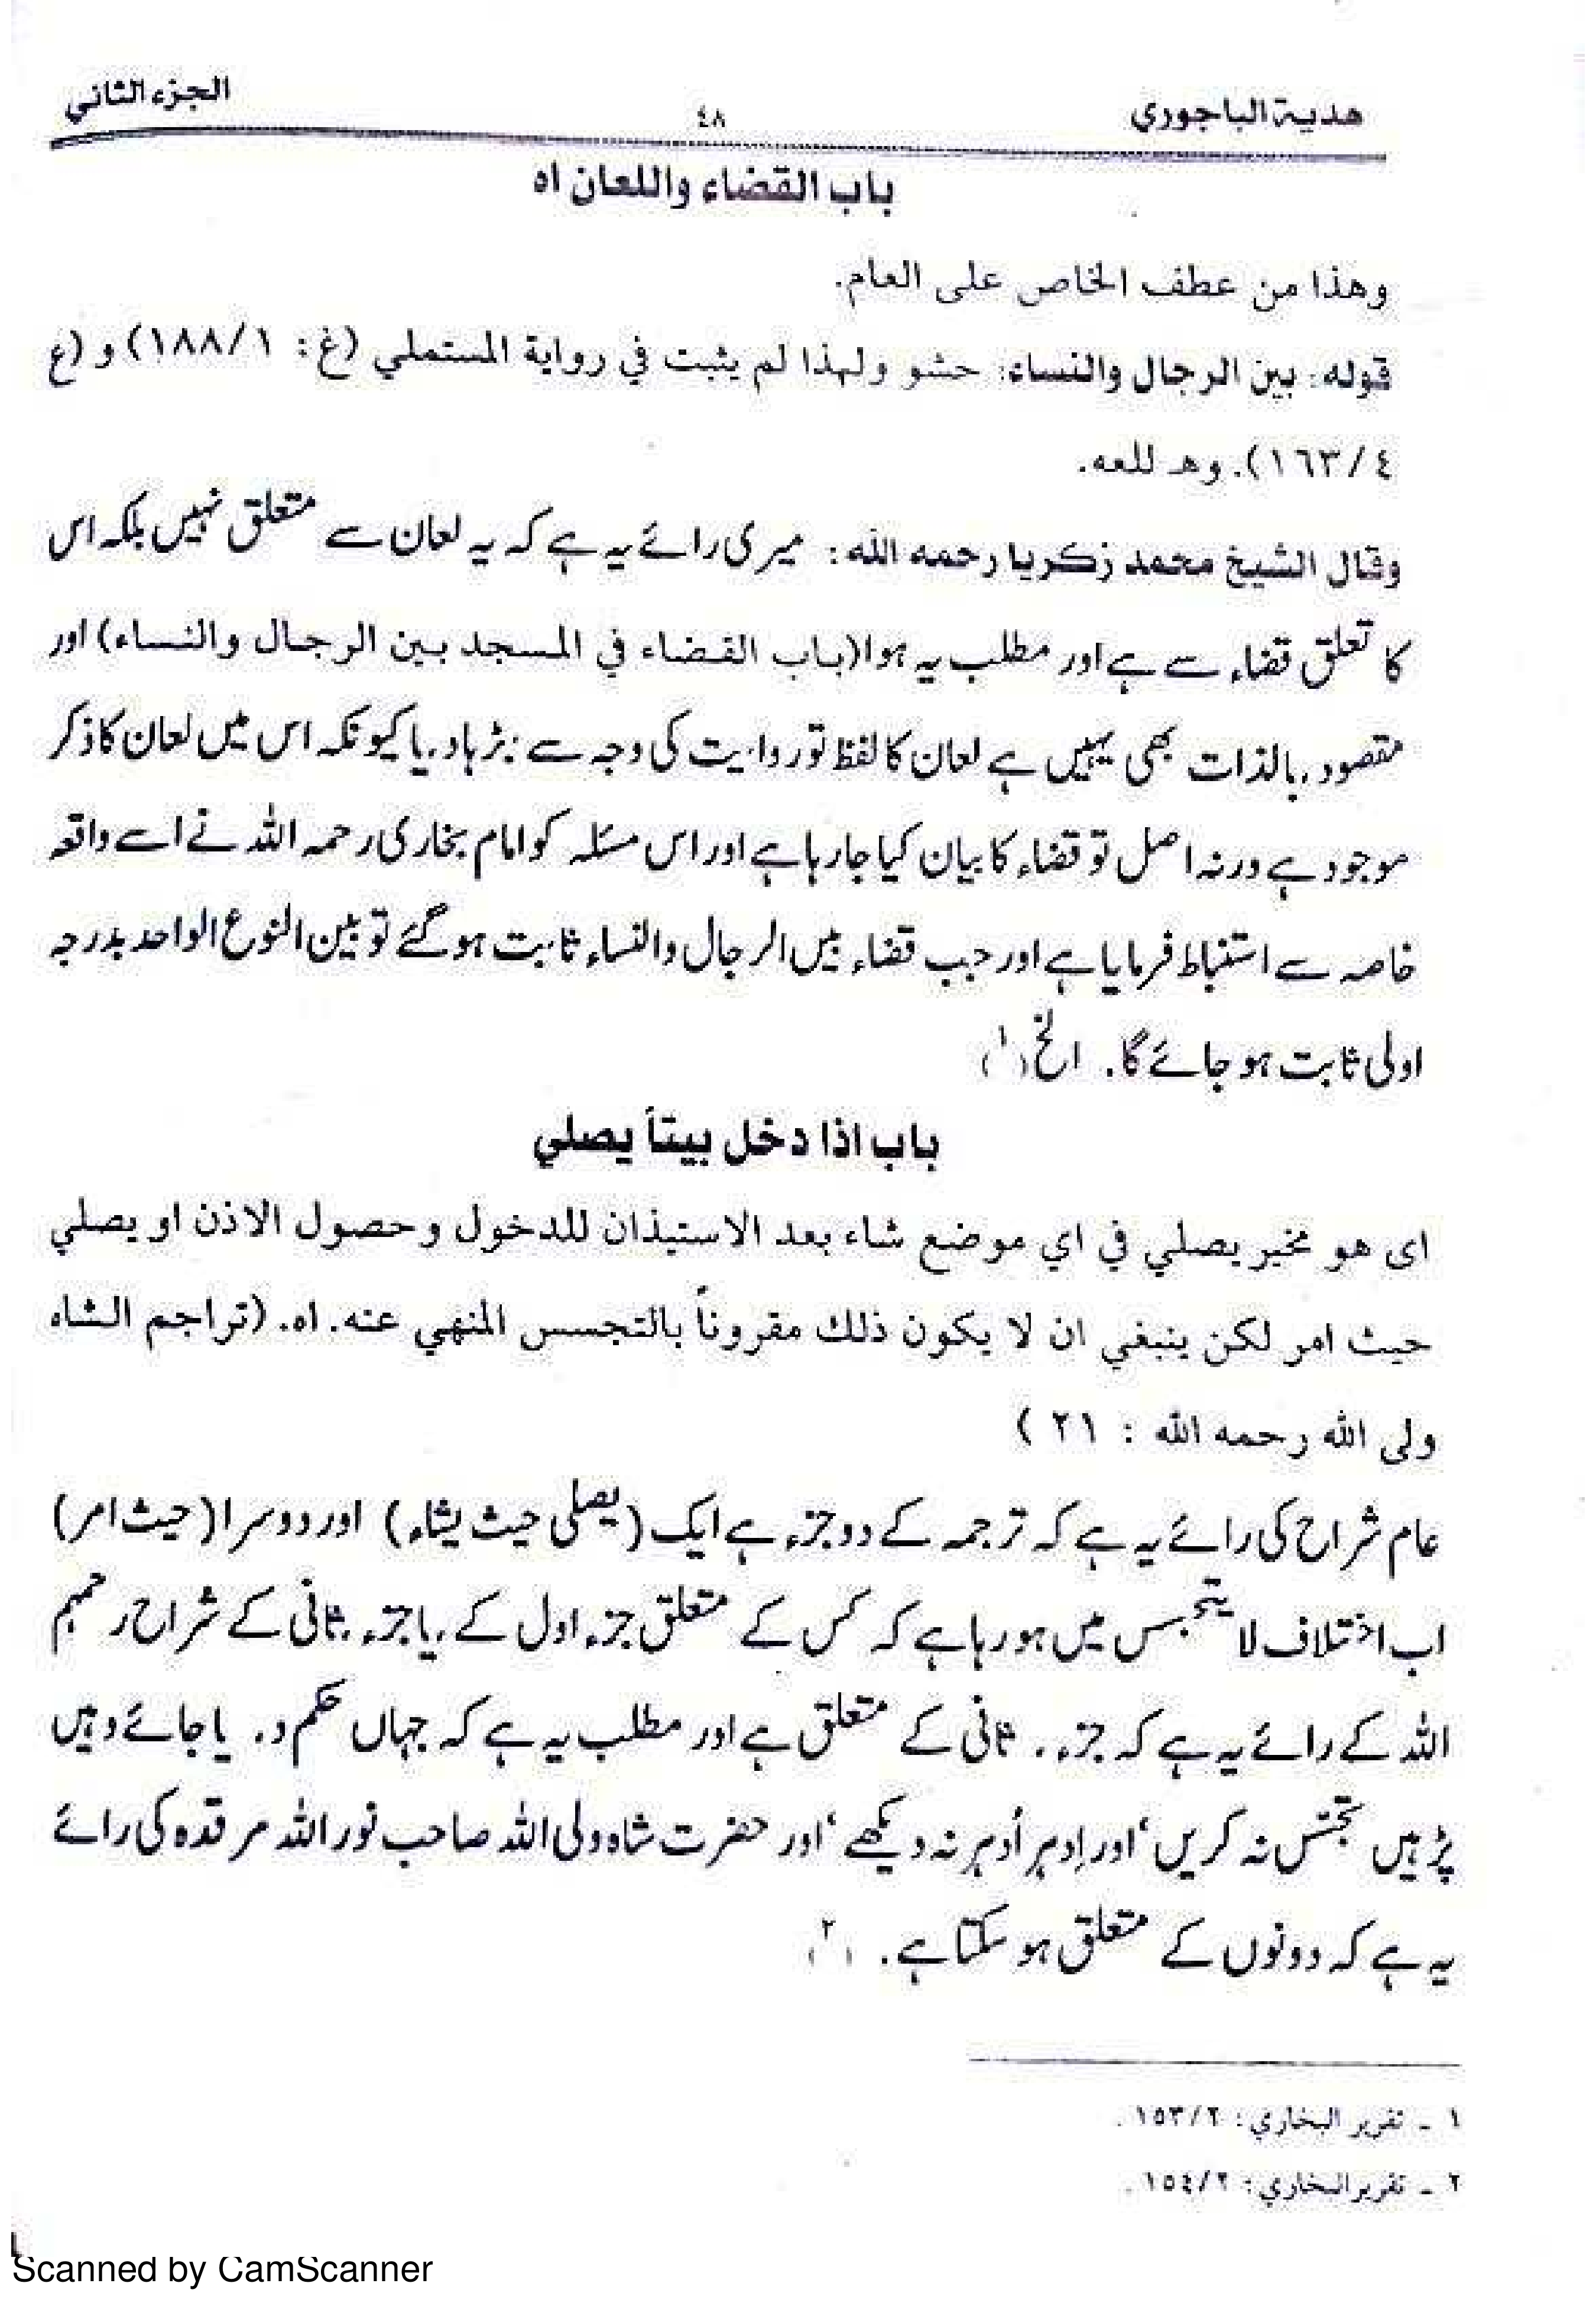 هدية الباجوري ٤٨ الجزء الثاني
باب القضاء واللعان اه
وهذا من عطف الخاص على العام.
قوله: بين الرجال والنساء: حشو ولهذا لم يثبت في رواية المستملي (غ: ١/١٨٨) و (ع
٤/١٦٣). وهـ للعه.
وقال الشيخ محمد زكريا رحمه الله: میری رائے یہ ہے کہ یہ لعان سے متعلق نہیں بلکہ اس
کا تعلق قضاء سے ہے اور مطلب یہ ہوا (باب القضاء في المسجد بين الرجال والنساء) اور
مقصود بالذات بھی یہیں ہے لعان کا لفظ تو روایت کی وجہ سے بڑہا دیا کیونکہ اس میں لعان کا ذکر
موجود ہے ورنہ اصل تو قضاء کا بیان کیا جا رہا ہے اور اس مسئلہ کو امام بخاری رحمہ اللہ نے اسے واقعہ
خاصہ سے استنباط فرمایا ہے اور جب قضاء بیں الرجال والنساء ثابت ہو گئے تو بین النوع الواحد بدرجہ
اولی ثابت ہو جائے گا. الخ (١)
باب اذا دخل بيتاً يصلي
اى هو مخير يصلي في اي موضع شاء بعد الاستيذان للدخول وحصول الاذن او يصلي
حيث امر لكن ينبغي ان لا يكون ذلك مقروناً بالتجسس المنهي عنه. اه. (تراجم الشاه
ولى الله رحمه الله : ٢١ )
عام شراح کی رائے یہ ہے کہ ترجمہ کے دو جزء ہے ایک (یصلی حیث یشاء) اور دوسرا (حیث امر)
اب اختلاف لا یتجسس میں ہو رہا ہے کہ کس کے متعلق جزء اول کے یا جزء ثانی کے شراح رحمہم
اللہ کے رائے یہ ہے کہ جزء ثانی کے متعلق ہے اور مطلب یہ ہے کہ جہاں حکم دیا جائے وہیں
پڑہیں تجسّس نہ کریں‘ اور اِدہر اُدہر نہ دیکھے‘ اور حضرت شاہ ولی اللہ صاحب نور اللہ مرقدہ کی رائے
یہ ہے کہ دونوں کے متعلق ہو سکتا ہے. (٢)
١ ـ تقرير البخاري: ٢/١٥٣.
٢ ـ تقرير البخاري: ٢/١٥٤.
Scanned by CamScanner